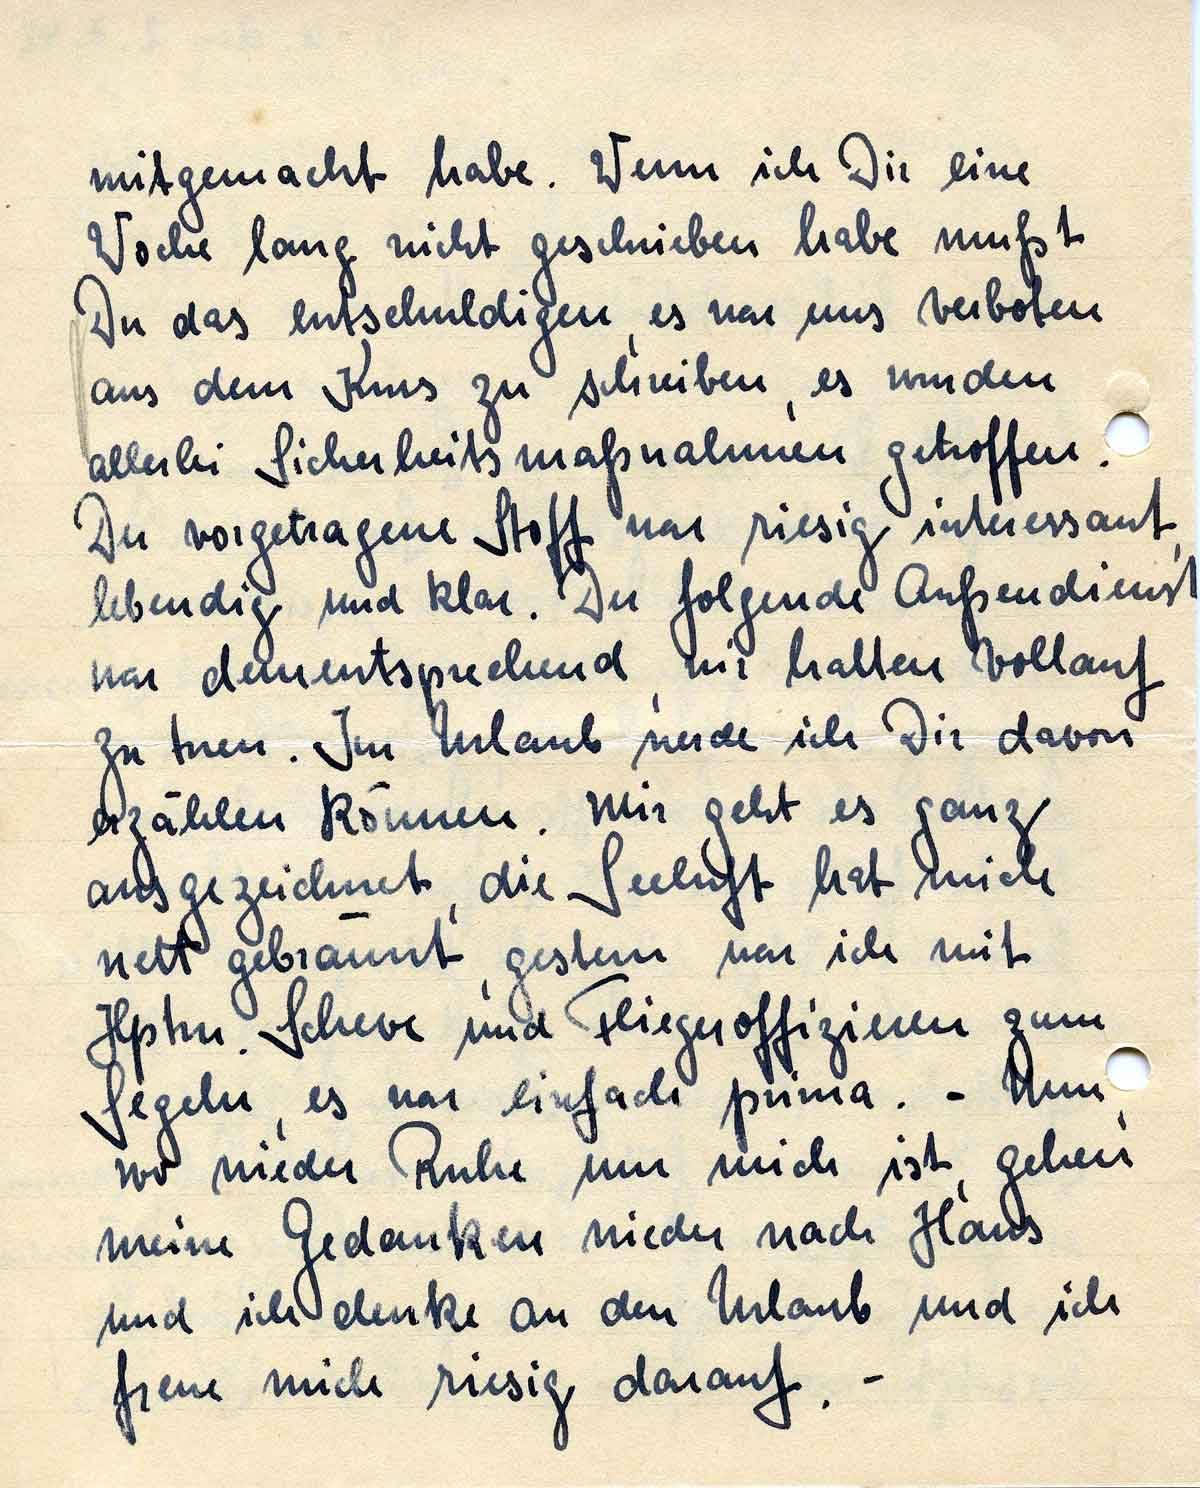 mitgemacht habe. Wenn ich Dir eine
Woche lang nicht geschrieben habe mußt
Du das entschuldigen, es war uns verboten
aus dem Kurs zu schreiben, es wurden
allerlei Sicherheitsmaßnahmen getroffen.
Der vorgetragene Stoff war riesig interessant,
lebendig und klar. Der folgende Außendienst
war dementsprechend, wir hatten vollauf
zu tuen. Im Urlaub werde ich Dir davon
erzählen können. Mir geht es ganz
ausgezeichnet, die Seeluft hat mich
nett gebräunt, gestern war ich mit
Hptm. Scheve und Fliegeroffizieren zum
Segeln, es war einfach prima. - Nun,
wo wieder Ruhe um mich ist, gehen
meine Gedanken wieder nach Haus
und ich denke an den Urlaub und ich
freue mich riesig darauf. -